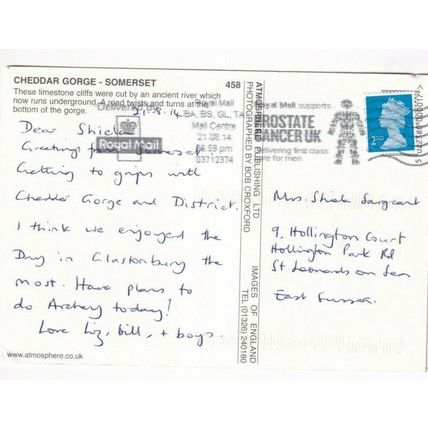 CHEDDAR GORGE - SOMERSET
458
These limestone cliffs were cut by an ancient river which
now runs underground. A road twists and turns at the
bottom of the gorge.
Delivered by
21.8.14
Royal Mail
Royal Mail
BA, BS, GL, TA
Mail Centre
21.08.14
08:59 pm
03712374
Royal Mail supports
PROSTATE
CANCER UK
Delivering first class
care for men
2ND
Dear Sheila
Greetings from Somerset
Getting to grips with
Cheddar Gorge and District.
I think we enjoyed the
Day in Glastonbury the
most. Have plans to
do Archery today!
Love Liz, Bill, + boys.
www.atmosphere.co.uk
ATMOSPHERE PUBLISHING LTD
PHOTOGRAPHED BY BOB CROXFORD
IMAGES OF ENGLAND
TEL (01326) 240180
Mrs. Sheila Sargeant
9, Hollington Court
Hollington Park Rd
St Leonards on Sea
East Sussex.